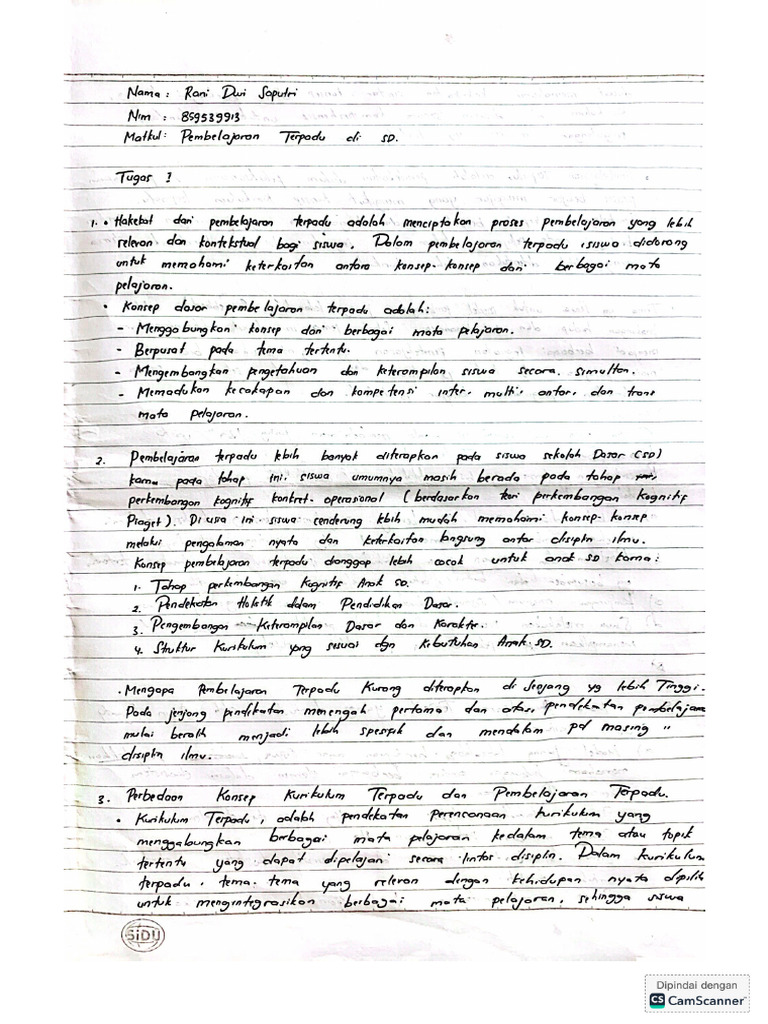 Nama : Rani Dwi Saputri
Nim : 859539913
Matkul : Pembelajaran Terpadu di SD.
Tugas I
1. • Hakekat dari pembelajaran terpadu adalah menciptakan proses pembelajaran yang lebih
relevan dan kontekstual bagi siswa. Dalam pembelajaran terpadu, siswa didorong
untuk memahami keterkaitan antara konsep-konsep dari berbagai mata
pelajaran.
• Konsep dasar pembelajaran terpadu adalah:
- Menggabungkan konsep dari berbagai mata pelajaran.
- Berpusat pada tema tertentu.
- Mengembangkan pengetahuan dan keterampilan siswa secara simultan.
- Memadukan kecakapan dan kompetensi inter, multi, antar, dan trans
mata pelajaran.
2. Pembelajaran terpadu lebih banyak diterapkan pada siswa sekolah Dasar (SD)
karna pada tahap ini. siswa umumnya masih berada pada tahap
perkembangan kognitif konkret-operasional (berdasarkan teori perkembangan Kognitif
Piaget). Di usia ini siswa cenderung lebih mudah memahami konsep-konsep
melalui pengalaman nyata dan keterkaitan langsung antar disiplin ilmu.
Konsep pembelajaran terpadu dianggap lebih cocok untuk anak SD karna:
1. Tahap perkembangan Kognitif Anak SD.
2. Pendekatan Holistik dalam Pendidikan Dasar.
3. Pengembangan Keterampilan Dasar dan Karakter.
4. Struktur Kurikulum yng sesuai dgn Kebutuhan Anak SD.
• Mengapa Pembelajaran Terpadu Kurang diterapkan di Jenjang yg lebih Tinggi.
Pada jenjang pendikatan menengah pertama dan atas, pendekatan pembelajaran
mulai beralih menjadi lebih spesifik dan mendalam pd masing "
disiplin ilmu.
3. Perbedaan Konsep Kurikulum Terpadu dan Pembelajaran Terpadu.
• Kurikulum Terpadu, adalah pendekatan perencanaan kurikulum yang
menggabungkan berbagai mata pelajaran kedalam tema atau topik
tertentu yang dapat dipelajari secara lintar disiplin. Dalam kurikulum
terpadu, tema-tema yang relevan dengan kehidupan nyata dipilih
untuk mengintegrasikan berbagai mata pelajaran, sehingga siswa
SiDU
Dipindai dengan
CS CamScanner